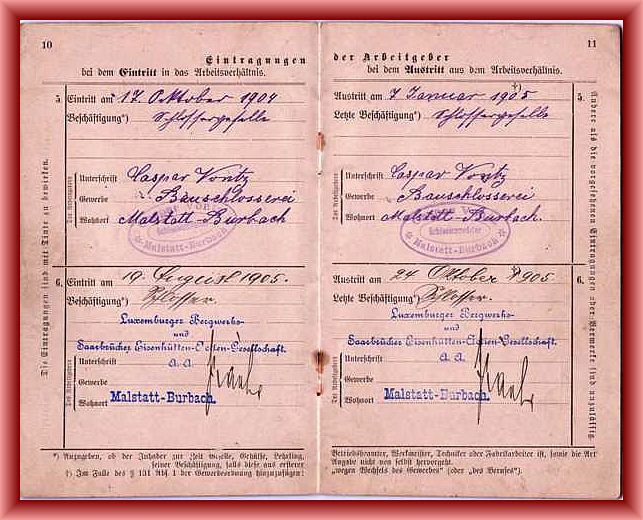 10
Eintragungen
bei dem Eintritt in das Arbeitsverhältnis.
Die Eintragungen sind mit Tinte zu bewirken.
5. Eintritt am 17. Oktober 1904
Beschäftigung*) Schlossergeselle
Des Arbeitgebers
Unterschrift Caspar Vontz
Gewerbe Bauschlosserei
Wohnort Malstatt-Burbach
Malstatt-Burbach
6. Eintritt am 19. August 1905.
Beschäftigung*) Schlosser.
Luxemburger Bergwerks-
und
Saarbrücker Eisenhütten-Actien-Gesellschaft.
Des Arbeitgebers
Unterschrift A. A.
Gewerbe
Wohnort Malstatt-Burbach.
*) Anzugeben, ob der Inhaber zur Zeit Geselle, Gehülfe, Lehrling,
seiner Beschäftigung, falls diese aus ersterer
†) Im Falle des § 131 Abs. 1 der Gewerbeordnung hinzuzufügen:
11
der Arbeitgeber
bei dem Austritt aus dem Arbeitsverhältnis.
Austritt am 7 Januar †) 1905 5.
Letzte Beschäftigung*) Schlossergeselle
Des Arbeitgebers
Unterschrift Caspar Vontz
Gewerbe Bauschlosserei
Wohnort Malstatt-Burbach.
Schlossermeister
Malstatt-Burbach
Austritt am 24 Oktober †) 1905 6.
Letzte Beschäftigung*) Schlosser.
Luxemburger Bergwerks-
und
Saarbrücker Eisenhütten-Actien-Gesellschaft.
Des Arbeitgebers
Unterschrift A. A.
Gewerbe
Wohnort Malstatt-Burbach.
Andere als die vorgesehenen Eintragungen oder Vermerke sind unzulässig.
Betriebsbeamter, Werkmeister, Techniker oder Fabrikarbeiter ist, sowie die Art
Angabe nicht von selbst hervorgeht.
„wegen Wechsels des Gewerbes“ (oder „des Berufes“).